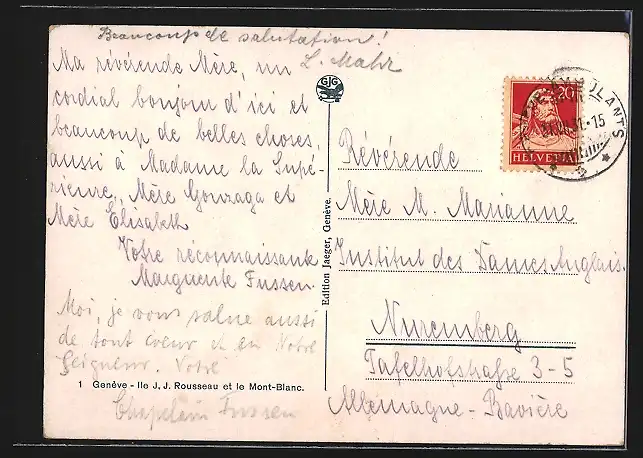 Beaucoup de salutation!
L. Mahr
Ma révérende Mère, un
cordial bonjour d'ici et
beaucoup de belles choses
aussi à Madame la Supé-
rieure, Mère Gonzaga et
Mère Elisabeth
Votre réconnaissante
Marguerite Fussen.
Moi, je vous salue aussi
de tout coeur et en Notre
Seigneur. Votre
Chapelain Fussen
1 Genève - Ile J. J. Rousseau et le Mont-Blanc.
GJG
Edition Jaeger, Genève.
20
HELVETIA
Révérende
Mère M. Marianne
Institut des Dames Anglais.
Nuremberg
Tafelhofstraße 3-5
Allemagne - Bavière